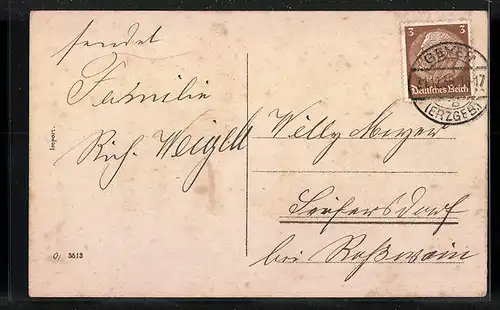 sendet
Familie
Rich. Weigelt
Import.
O/ 3513
3 3
Deutsches Reich
GEYER
17
(ERZGEB)
Willy Meyer
Seifersdorf
bei Roßwein